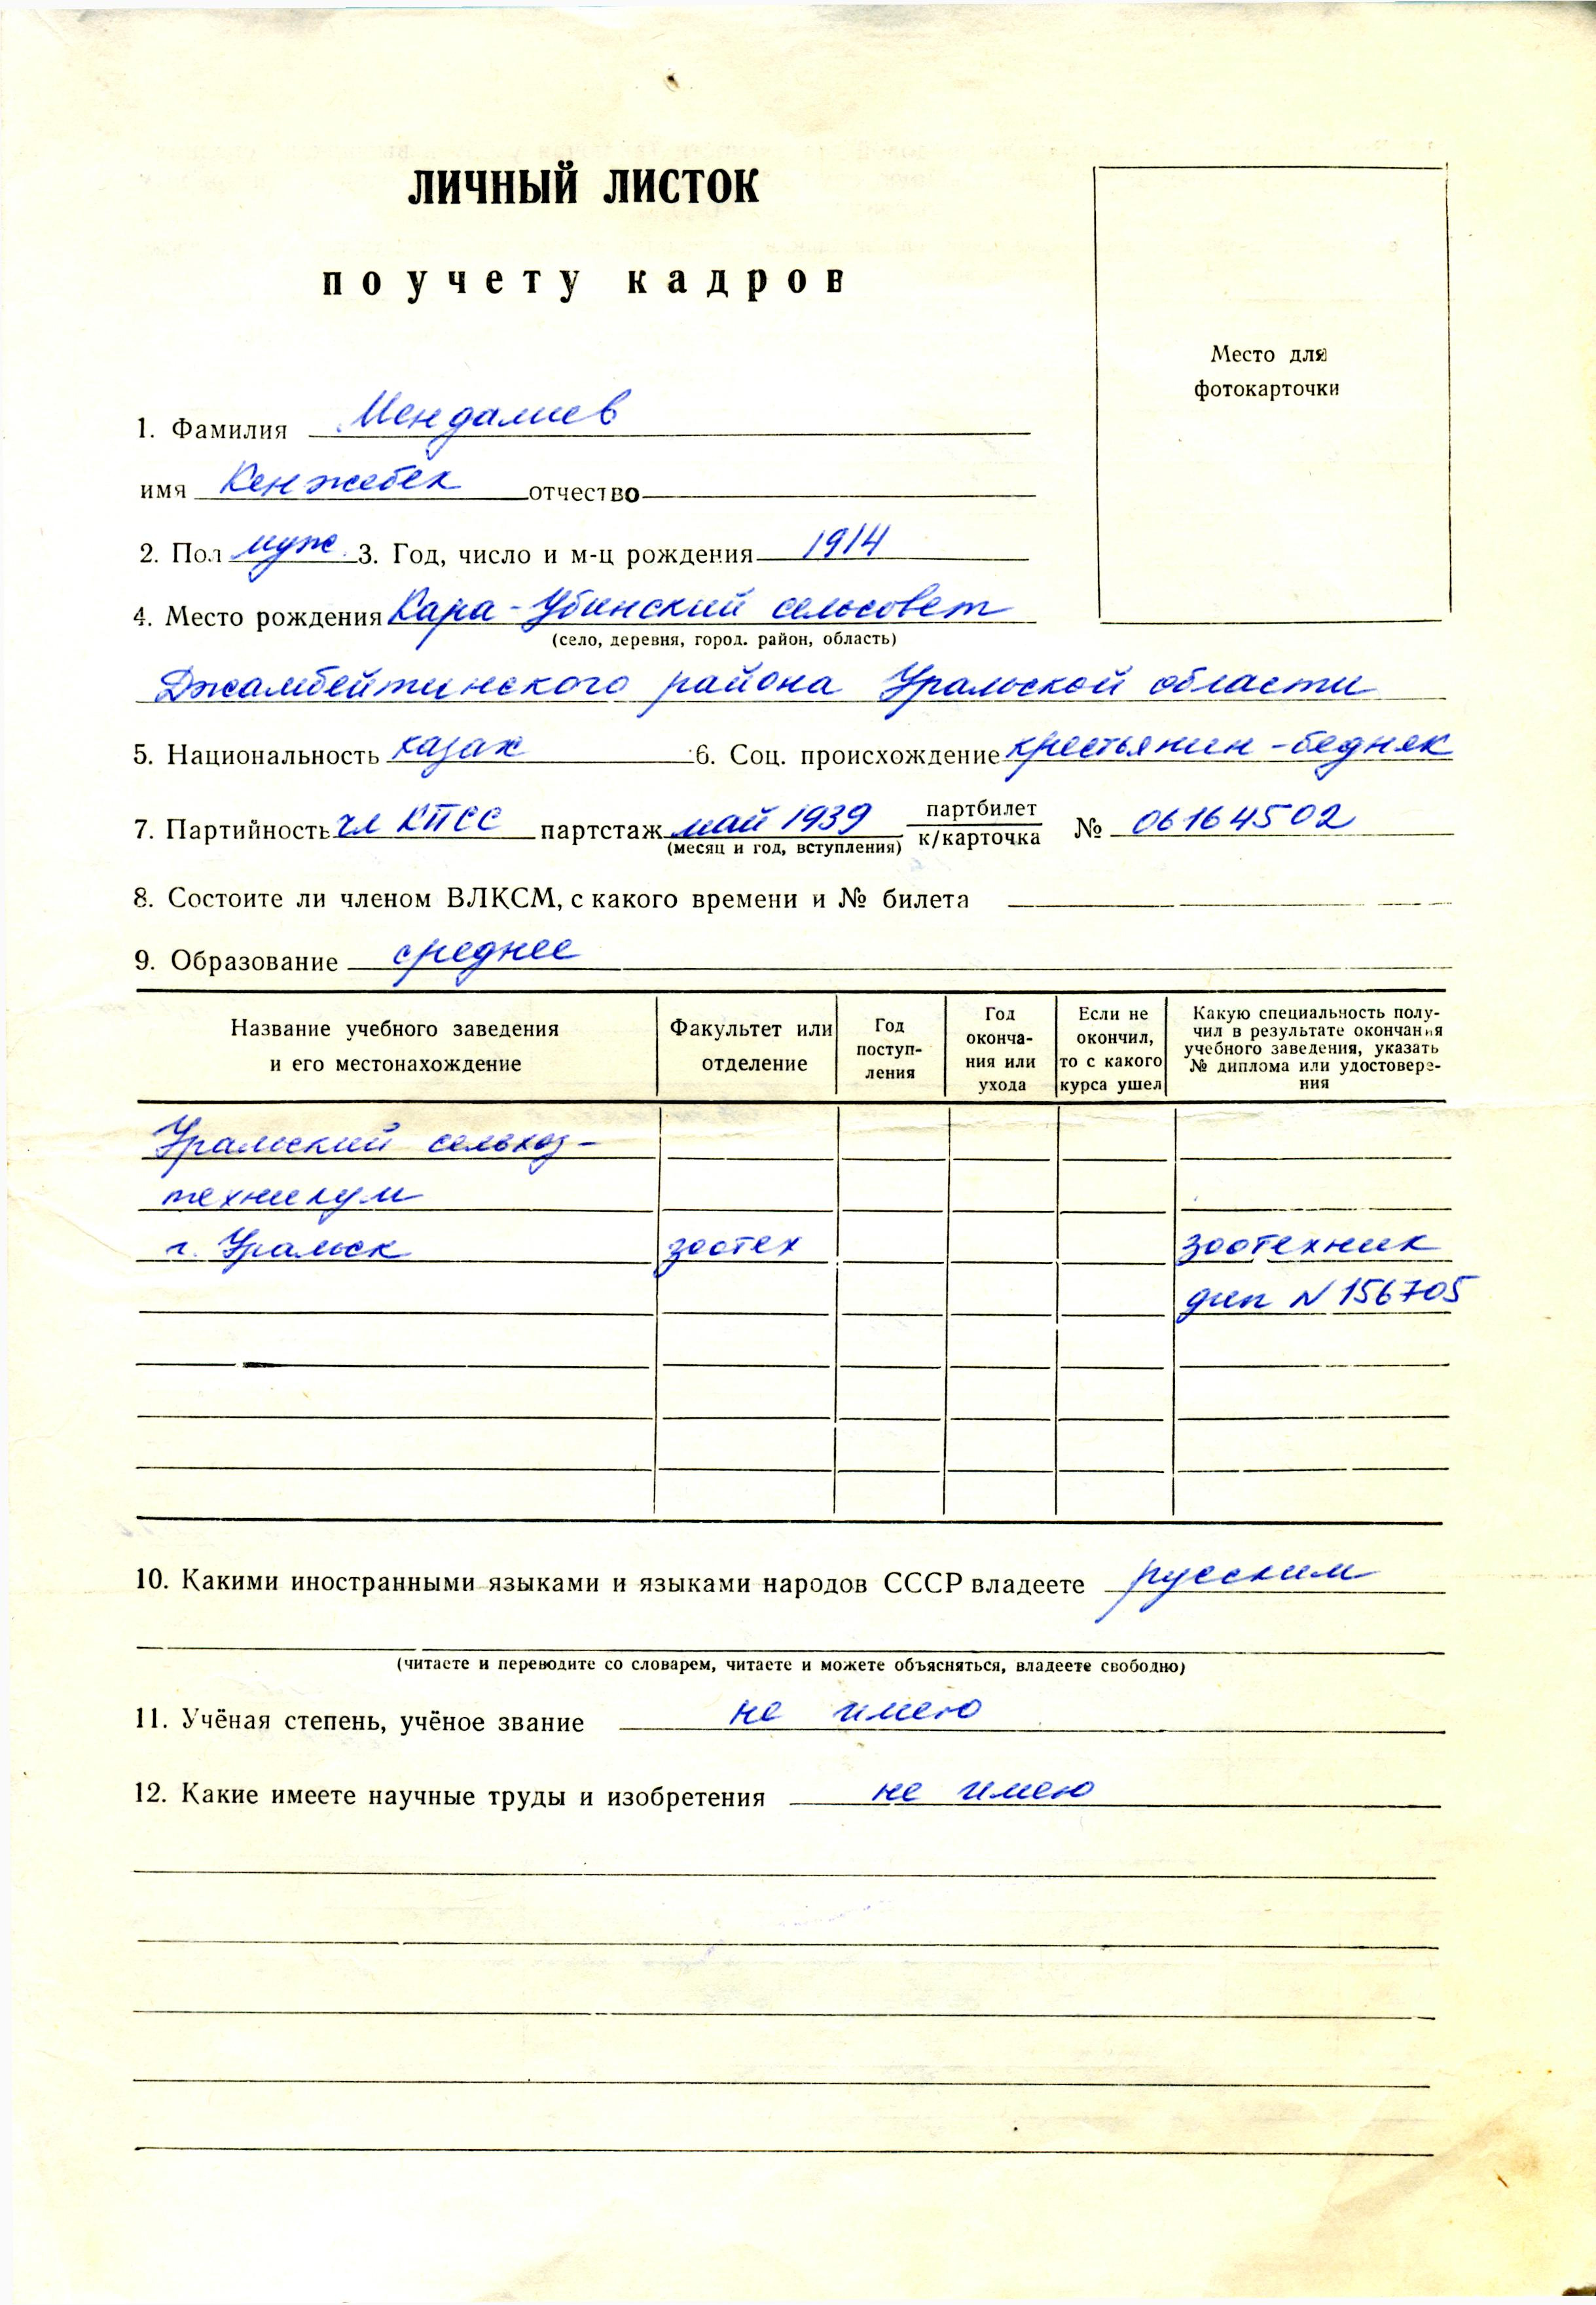 ЛИЧНЫЙ ЛИСТОК
по учету кадров
Место для
фотокарточки
1. Фамилия Мендалиев
имя Кенжебек отчество
2. Пол муж. 3. Год, число и м-ц рождения 1914
4. Место рождения Кара-Убинский сельсовет
(село, деревня, город. район, область)
Джамбейтинского района Уральской области
5. Национальность казах 6. Соц. происхождение крестьянин-бедняк
7. Партийность чл КПСС партстаж май 1939 партбилет № 06164502
(месяц и год, вступления) к/карточка
8. Состоите ли членом ВЛКСМ, с какого времени и № билета
9. Образование среднее
Название учебного заведения
и его местонахождение
Факультет или
отделение
Год
поступ-
ления
Год
оконча-
ния или
ухода
Если не
окончил,
то с какого
курса ушел
Какую специальность полу-
чил в результате окончания
учебного заведения, указать
№ диплома или удостовере-
ния
Уральский сельхоз-
техникум
г. Уральск зоотех зоотехник
дип N 156705
10. Какими иностранными языками и языками народов СССР владеете русским
(читаете и переводите со словарем, читаете и можете объясняться, владеете свободно)
11. Учёная степень, учёное звание не имею
12. Какие имеете научные труды и изобретения не имею